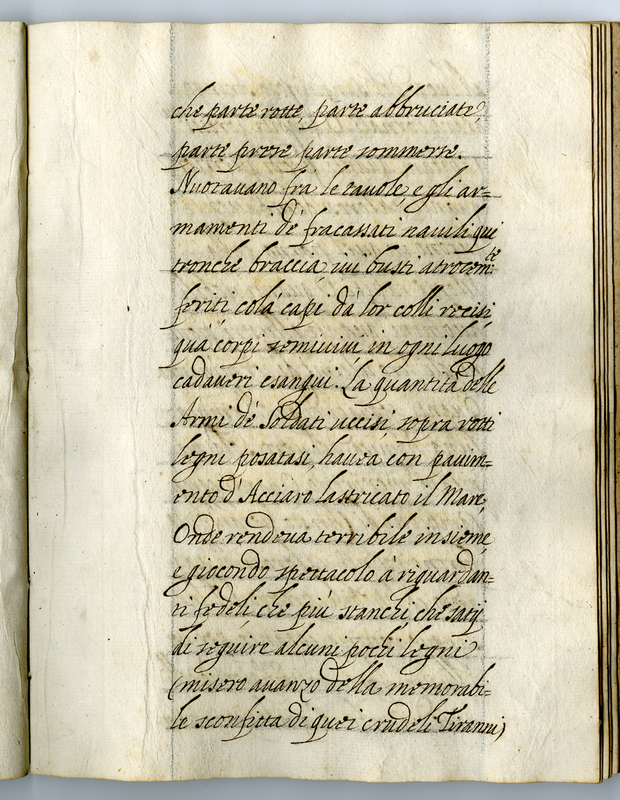 che parte rotte, parte abbruciate,
parte prese parte sommerse.
Nuotavano fra le tavole, e gli ar=
mamenti de fracassati navili qui
tronche braccia, ivi busti atrocem:te
feriti colà capi dà lor colli recisi,
quà corpi semivivi, in ogni luogo
cadaveri esangui. La quantità delle
Armi dè Soldati uccisi sopra rotti
legni posatasi, havea con pavim=
ento d'Acciaro lastricato il Mare,
Onde rendeva terribile insieme,
e giocondo spettacolo à riguardan=
ti fedeli, che più stanchi che satij
di seguire alcuni pochi legni
(misero avanzo della memorabi=
le sconfitta di quei crudeli Tiranni)